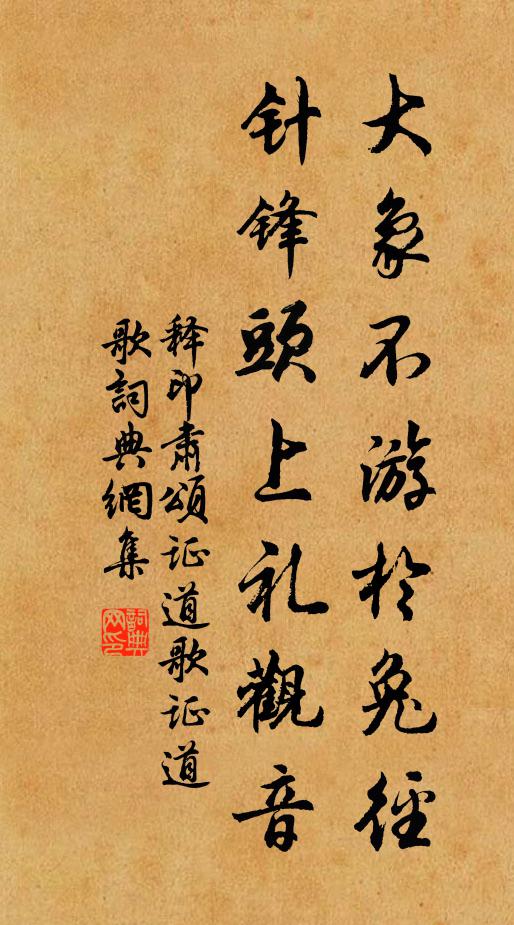 大象不游於兔徑
针锋頭上礼觀音
释印肃頌证道歌证道
歌詞典網集
詞典网印